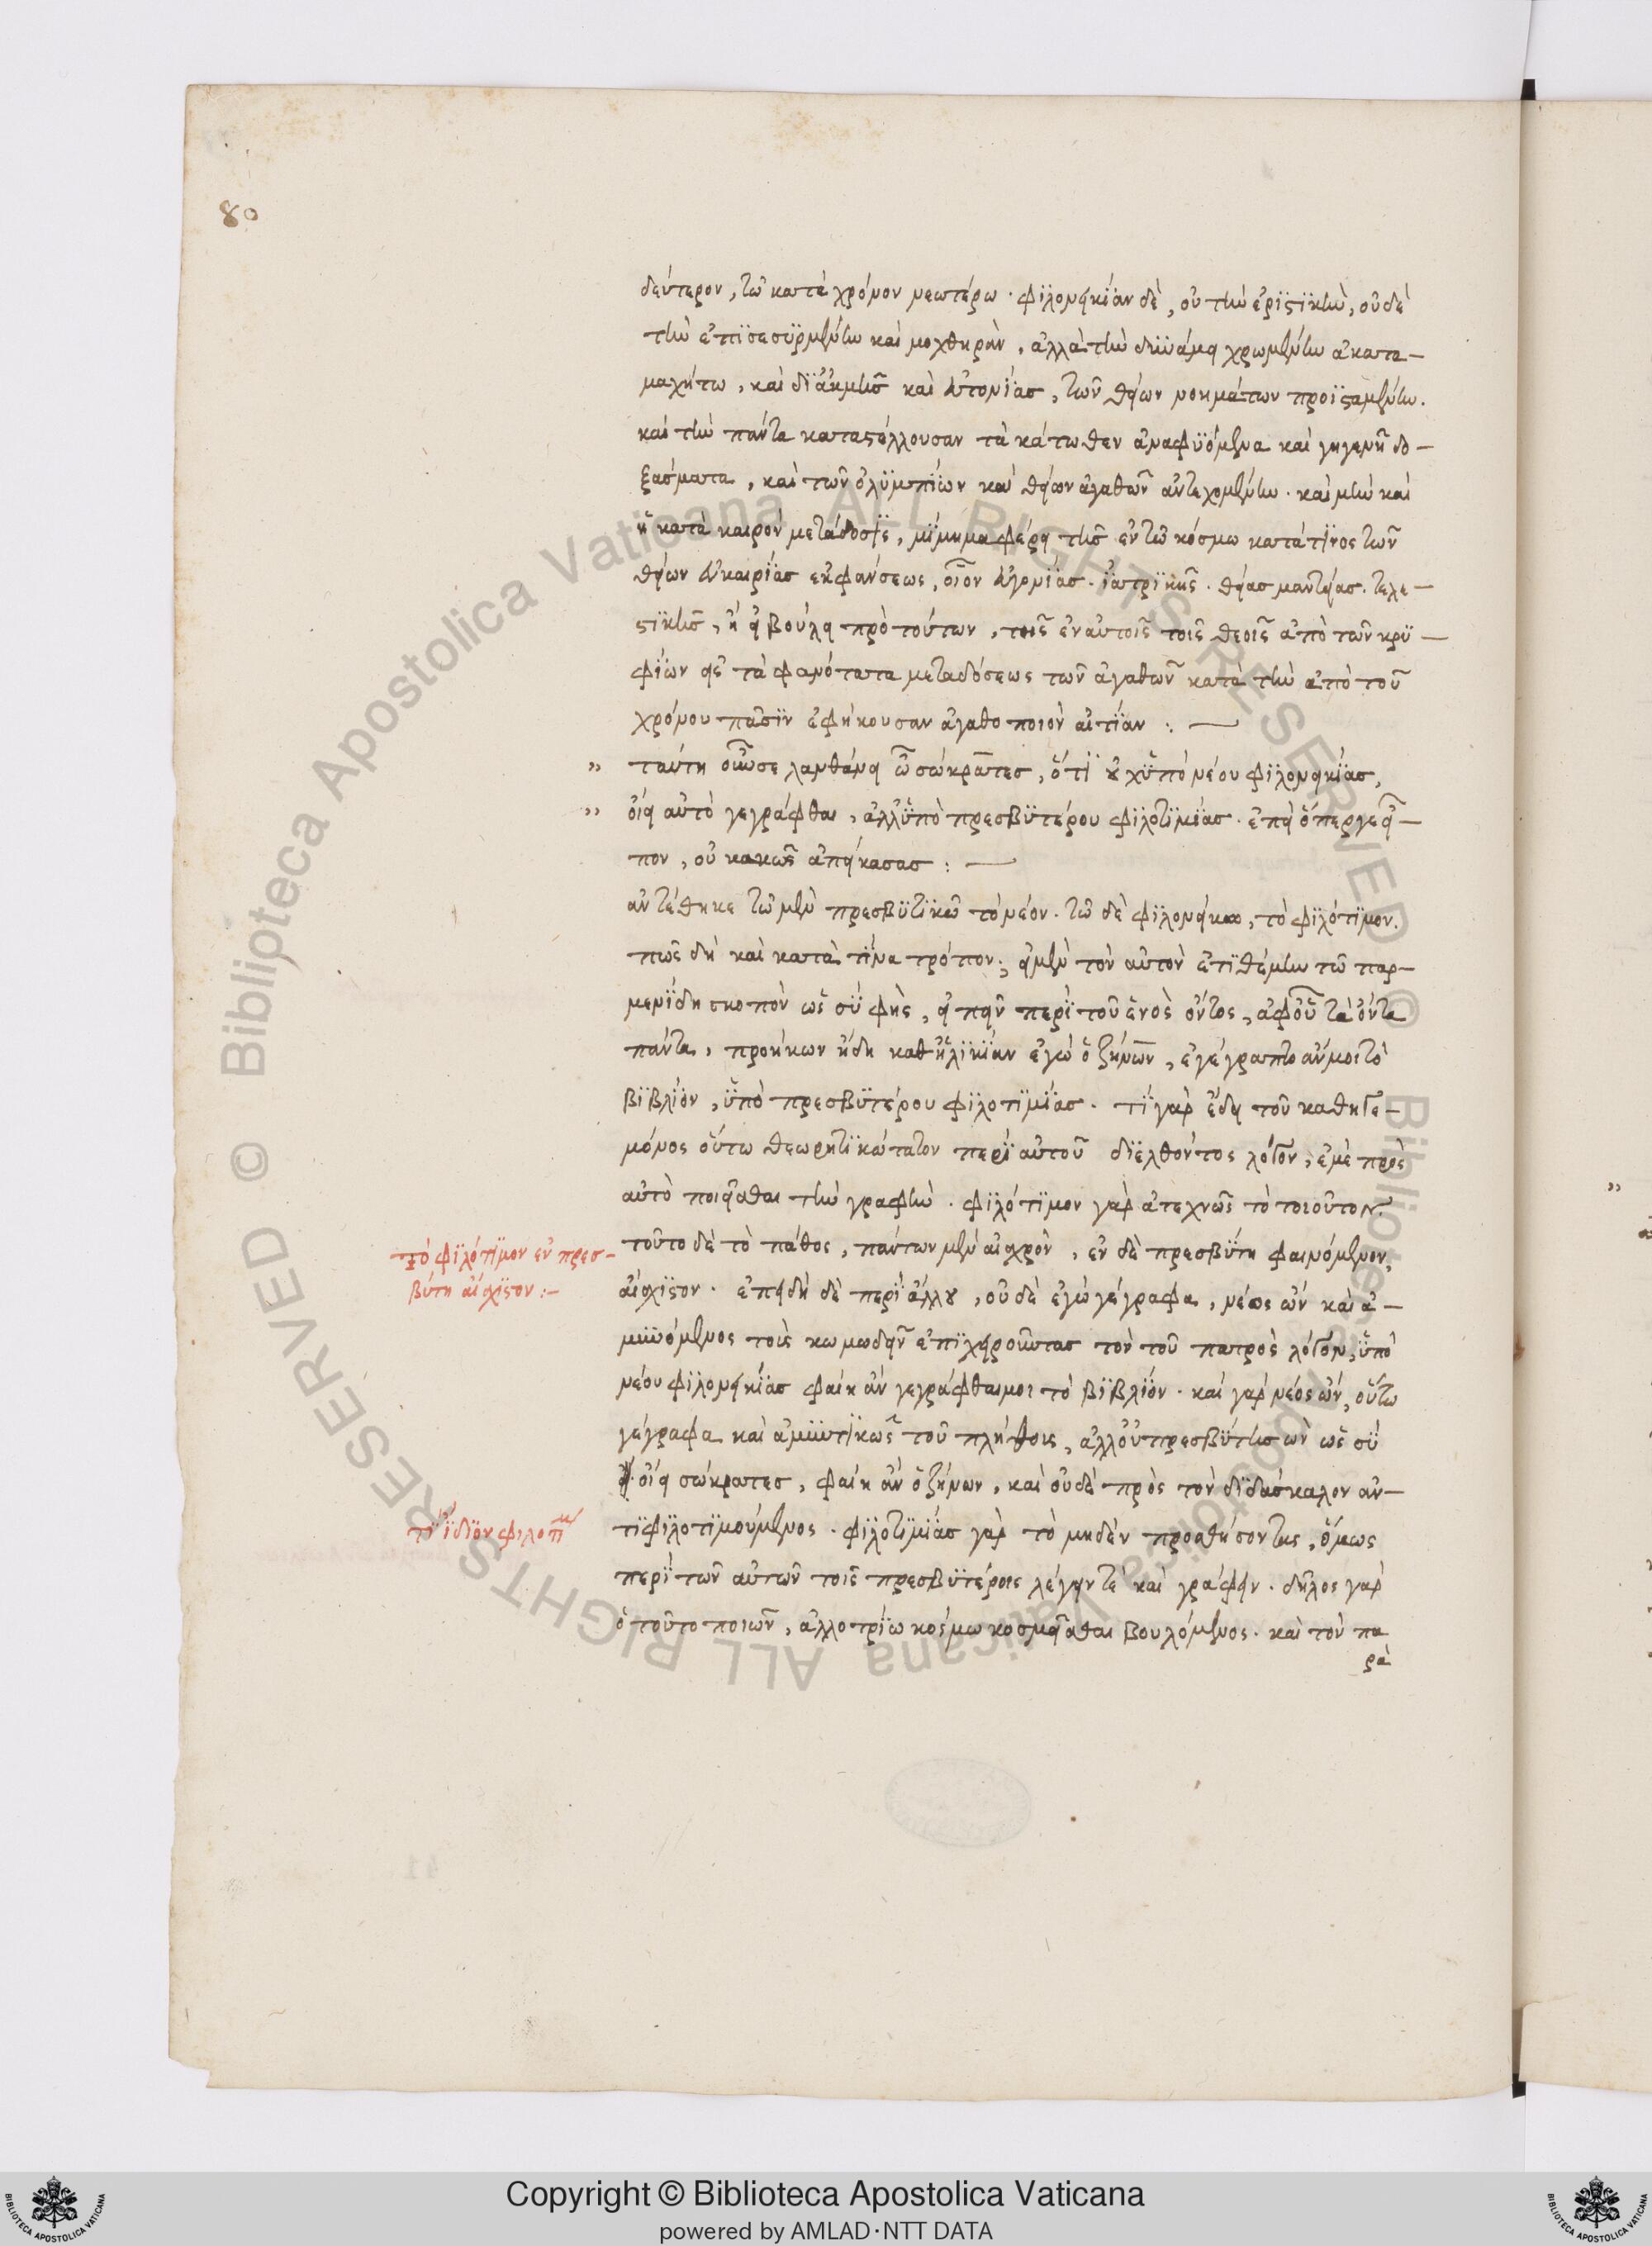 80
δεύτερον, τῶ κατὰ χρόνον νεωτέρω· φϊλονεικίαν δὲ, οὐ τὴν ἐριϛϊκὴν, οὐδὲ
τὴν ἐπϊσεσϋρμένην καὶ μοχθηρὰν, ἀλλὰ τὴν δυνάμει χρωμένην ἀκατα–
μαχήτω, καὶ δϊ ἀκμῆς καὶ εὐτονίας, τῶν θείων νοημάτων προϊϛαμένην.
καὶ τὴν πάντα καταϛέλλουσαν τὰ κάτωθεν ἀναφϋόμενα καὶ γηγενῆ δο–
ξάσματα, καὶ τῶν ὀλϋμπίων καὶ θείων ἀγαθῶν ἀντεχομένην· καὶ μὴν καὶ
ἡ κατὰ καιρὸν μετάδοσϊς, μίμημα φέρει τῆς ἐν τῶ κόσμω κατά τϊνος τῶν
θείων εὐκαιρίας ἐκφάνσεως, οἷον εὐγονίας· ἰατρϊκῆς· θείας μαντείας· τελε–
ϛϊκῆς, ἢ εἰ βούλει πρὸ τούτων, τοῖς ἐν αὐτοῖς τοῖς θεοῖς ἀπὸ τῶν κρϋ–
φίων εἰς τὰ φανότατα μεταδόσεως τῶν ἀγαθῶν κατὰ τὴν ἀπὸ τοῦ
χρόνου πᾶσϊν ἐφήκουσαν ἀγαθοποιὸν αἰτίαν :—
" ταύτη οὖν σε λανθάνει ὦ σώκρατες, ὅτϊ οὐχ ὑπὸ νέου φϊλονεικίας,
" οἴει αὐτὸ γεγράφθαι, ἀλλ ὑπὸ πρεσβϋτέρου φϊλοτϊμίας· ἐπεὶ ὅπερ γε εἶ–
πον, οὐ κακῶς ἀπείκασας :—
ἀντέθηκε τῶ μὲν πρεσβϋτϊκῶ τὸ νέον· τῶ δὲ φϊλονείκω, τὸ φϊλότϊμον.
πῶς δὴ καὶ κατὰ τίνα τρόπον; εἰ μὲν τὸν αὐτὸν ἐτϊθέμην τῶ παρ–
μενϊδη σκοπὸν ὡς σὺ φὴς, εἰπεῖν περὶ τοῦ ἑνὸς ὄντος, ἀφ οὗ τὰ ὄντα
πάντα, προήκων ἤδη καθ ἡλϊκίαν ἐγὼ ὁ ζήνων, ἐγέγραπτο ἄν μοι τὸ
βϊβλϊον, ὑπὸ πρεσβϋτέρου φϊλοτϊμίας· τί γὰρ ἔδει τοῦ καθηγε–
μόνος οὕτω θεωρητϊκώτατον περὶ αὐτοῦ διελθόντος λόγον, ἐμὲ πρὸς
αὐτὸ ποιεῖσθαι τὴν γραφὴν· φϊλότϊμον γὰρ ἀτεχνῶς τὸ τοιοῦτον.
τοῦτο δὲ τὸ πάθος, πάντων μὲν αἰσχρὸν, ἐν δὲ πρεσβύτη φαινόμενον,
αἴσχϊϛον· ἐπειδὴ δὲ περὶ ἄλλου, οὐδὲ ἐγὼ γέγραφα, νέος ὢν καὶ ἀ–
μϋνόμενος τοὺς κωμωδεῖν ἐπϊχειροῦντας τὸν τοῦ πατρὸς λόγον, ὑπὸ
νέου φϊλονεικίας φαίη ἂν γεγράφθαι μοι τὸ βϊβλϊον· καὶ γὰρ νέος ὢν, οὕτω
γέγραφα καὶ ἀμϋντϊκῶς τοῦ πλήθους, ἀλλ οὐ πρεσβύτης ὢν ὡς σὺ
οἴει σώκρατες, φαίη ἂν ὁ ζήνων, καὶ οὐδὲ πρὸς τὸν δϊδάσκαλον ἀν–
τϊφϊλοτϊμούμενος· φϊλοτϊμίας γὰρ τὸ μηδὲν προσθήσοντας, ὅμως
περὶ τῶν αὐτῶν τοῖς πρεσβϋτέροις λέγειν τὲ καὶ γράφειν· δῆλος γὰρ
ὁ τοῦτο ποιῶν, ἀλλοτρίω κόσμω κοσμεῖσθαι βουλόμενος· καὶ τὸν πα
ρὰ
τὸ φϊλότϊμον ἐν πρεσ–
βύτη αἴσχϊϛον :–
τί ἴδϊον φιλοτιμ
Copyright © Biblioteca Apostolica Vaticana
powered by AMLAD·NTT DATA